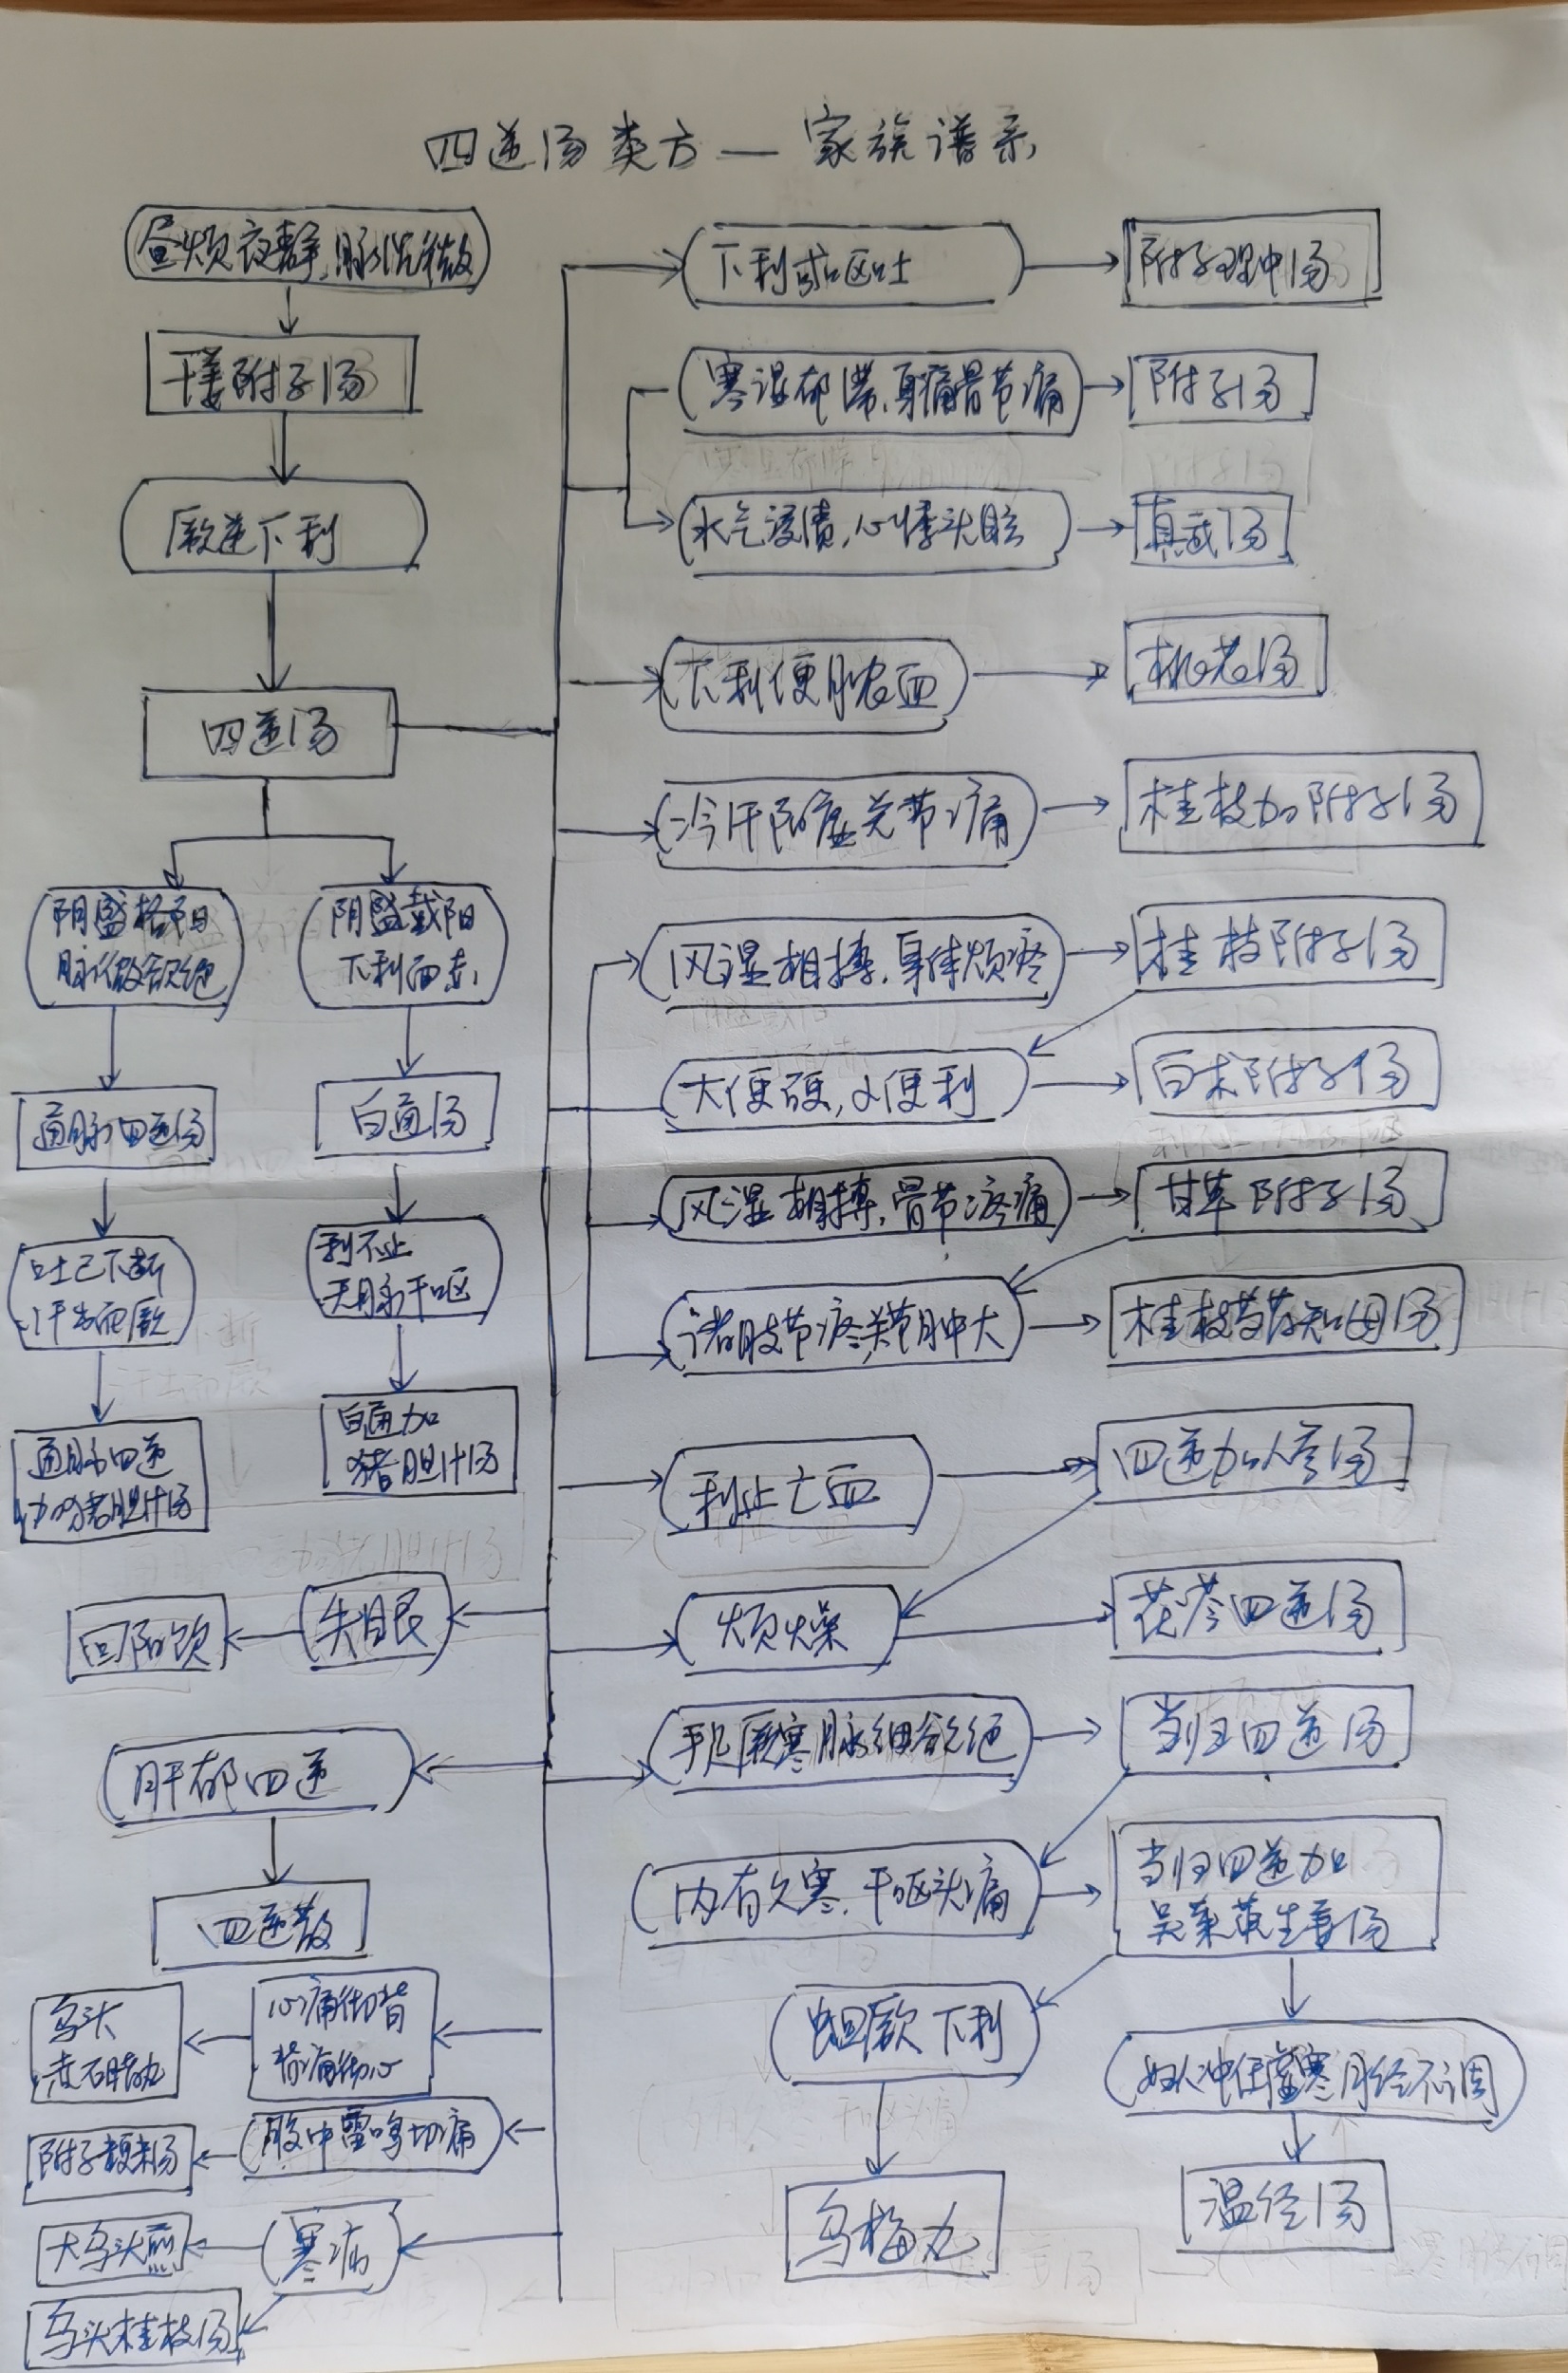 四逆汤类方—家族谱系
昼烦夜静,脉沉微
干姜附子汤
厥逆下利
四逆汤
阴盛格阳
脉微欲绝
通脉四逆汤
吐已下断
汗出而厥
通脉四逆
加猪胆汁汤
阴盛戴阳
下利面赤
白通汤
利不止
无脉干呕
白通加
猪胆汁汤
失眠
回阳饮
肝郁四逆
四逆散
心痛彻背
背痛彻心
乌头
赤石脂丸
腹中雷鸣切痛
附子粳米汤
寒疝
大乌头煎
乌头桂枝汤
下利或呕吐
附子理中汤
寒湿郁滞,身痛骨节痛
附子汤
水气浸渍,心悸头眩
真武汤
下利便脓血
桃花汤
冷汗阳虚关节痛
桂枝加附子汤
风湿相搏,身体烦疼
桂枝附子汤
大便硬,小便利
白术附子汤
风湿相搏,骨节疼痛
甘草附子汤
诸肢节疼,关节肿大
桂枝芍药知母汤
利止亡血
四逆加人参汤
烦燥
茯苓四逆汤
手足厥寒脉细欲绝
当归四逆汤
内有久寒,干呕头痛
当归四逆加
吴茱萸生姜汤
蛔厥下利
乌梅丸
妇人冲任虚寒月经不调
温经汤